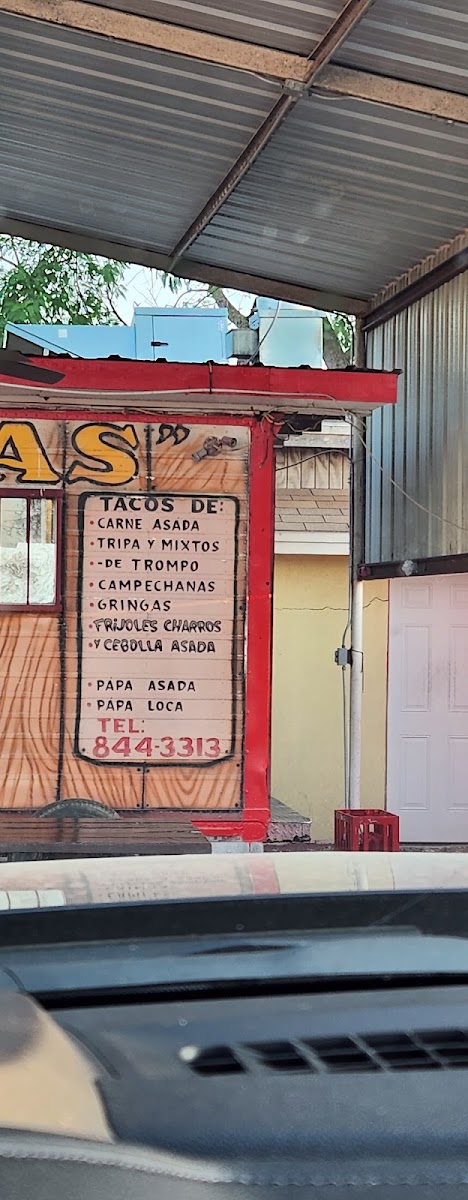 AS"
TACOS DE:
• CARNE ASADA
• TRIPA Y MIXTOS
• -DE TROMPO
• CAMPECHANAS
• GRINGAS
• FRIJOLES CHARROS
• Y CEBOLLA ASADA
• PAPA ASADA
• PAPA LOCA
TEL:
844-3313